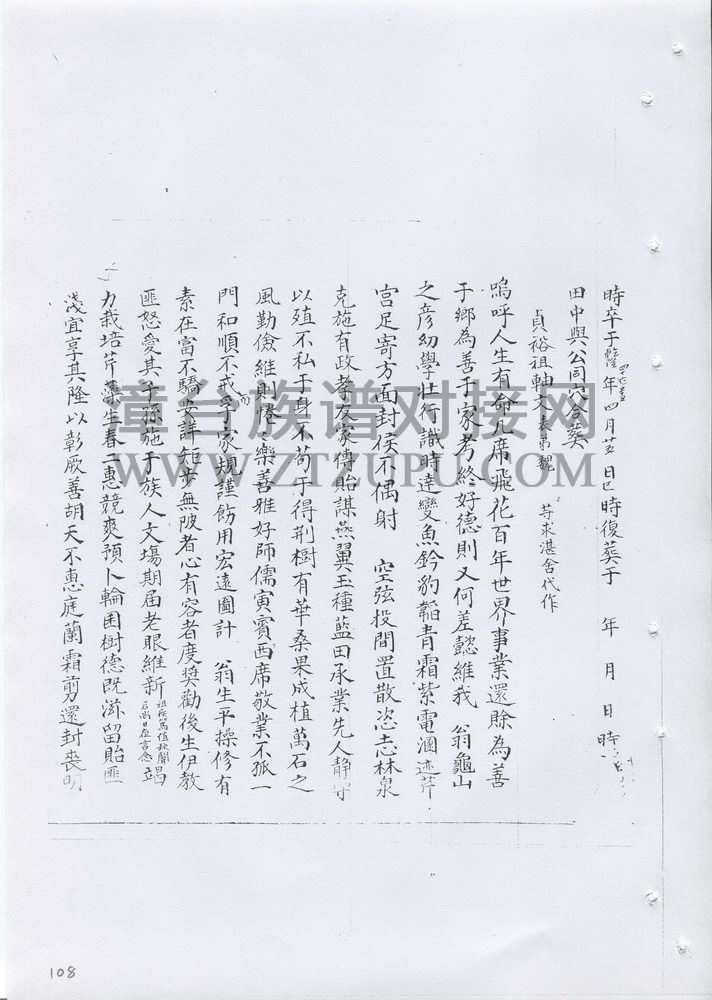 時卒于年四月廿五日巳時復葬于　年　月　日　時
田中與公同穴合葬
貞裕祖軸文表弟魏　芋求湛舍代作
嗚呼人生有命几席飛花百年世界事業還賒為善
于鄉為善于家考終好德則又何差懿維我　翁龜山
之彥幼學壯行識時達變魚鈐豹韜青霜紫電溷迹芹
宮足寄方面封侯不偶射　空弦投間置散恣志林泉
克施有政孝友家傳貽謀燕翼玉種藍田承業先人靜守
以殖不私于身不苟于得荆樹有華桑果成植萬石之
風勤儉維則惓惓樂善雅好師儒寅賓西席敬業不孤一
門和順不戒而孚家規謹飭用宏遠圖計　翁生平操修有
素在富不驕安詳矩步無陂者心有容者度奬勸後生伊教
匪怒愛其子孫施于族人文場期屆老眼維新祖疾篤值秋闈后尚日在言念竭
力栽培芹藻生春二惠競爽預卜輪囷樹德既滋留貽匪
淺宜享其隆以彰厥善胡天不惠庭蘭霜剪還封喪明
108
章台族谱对接网
WWW.ZTZUPU.COM